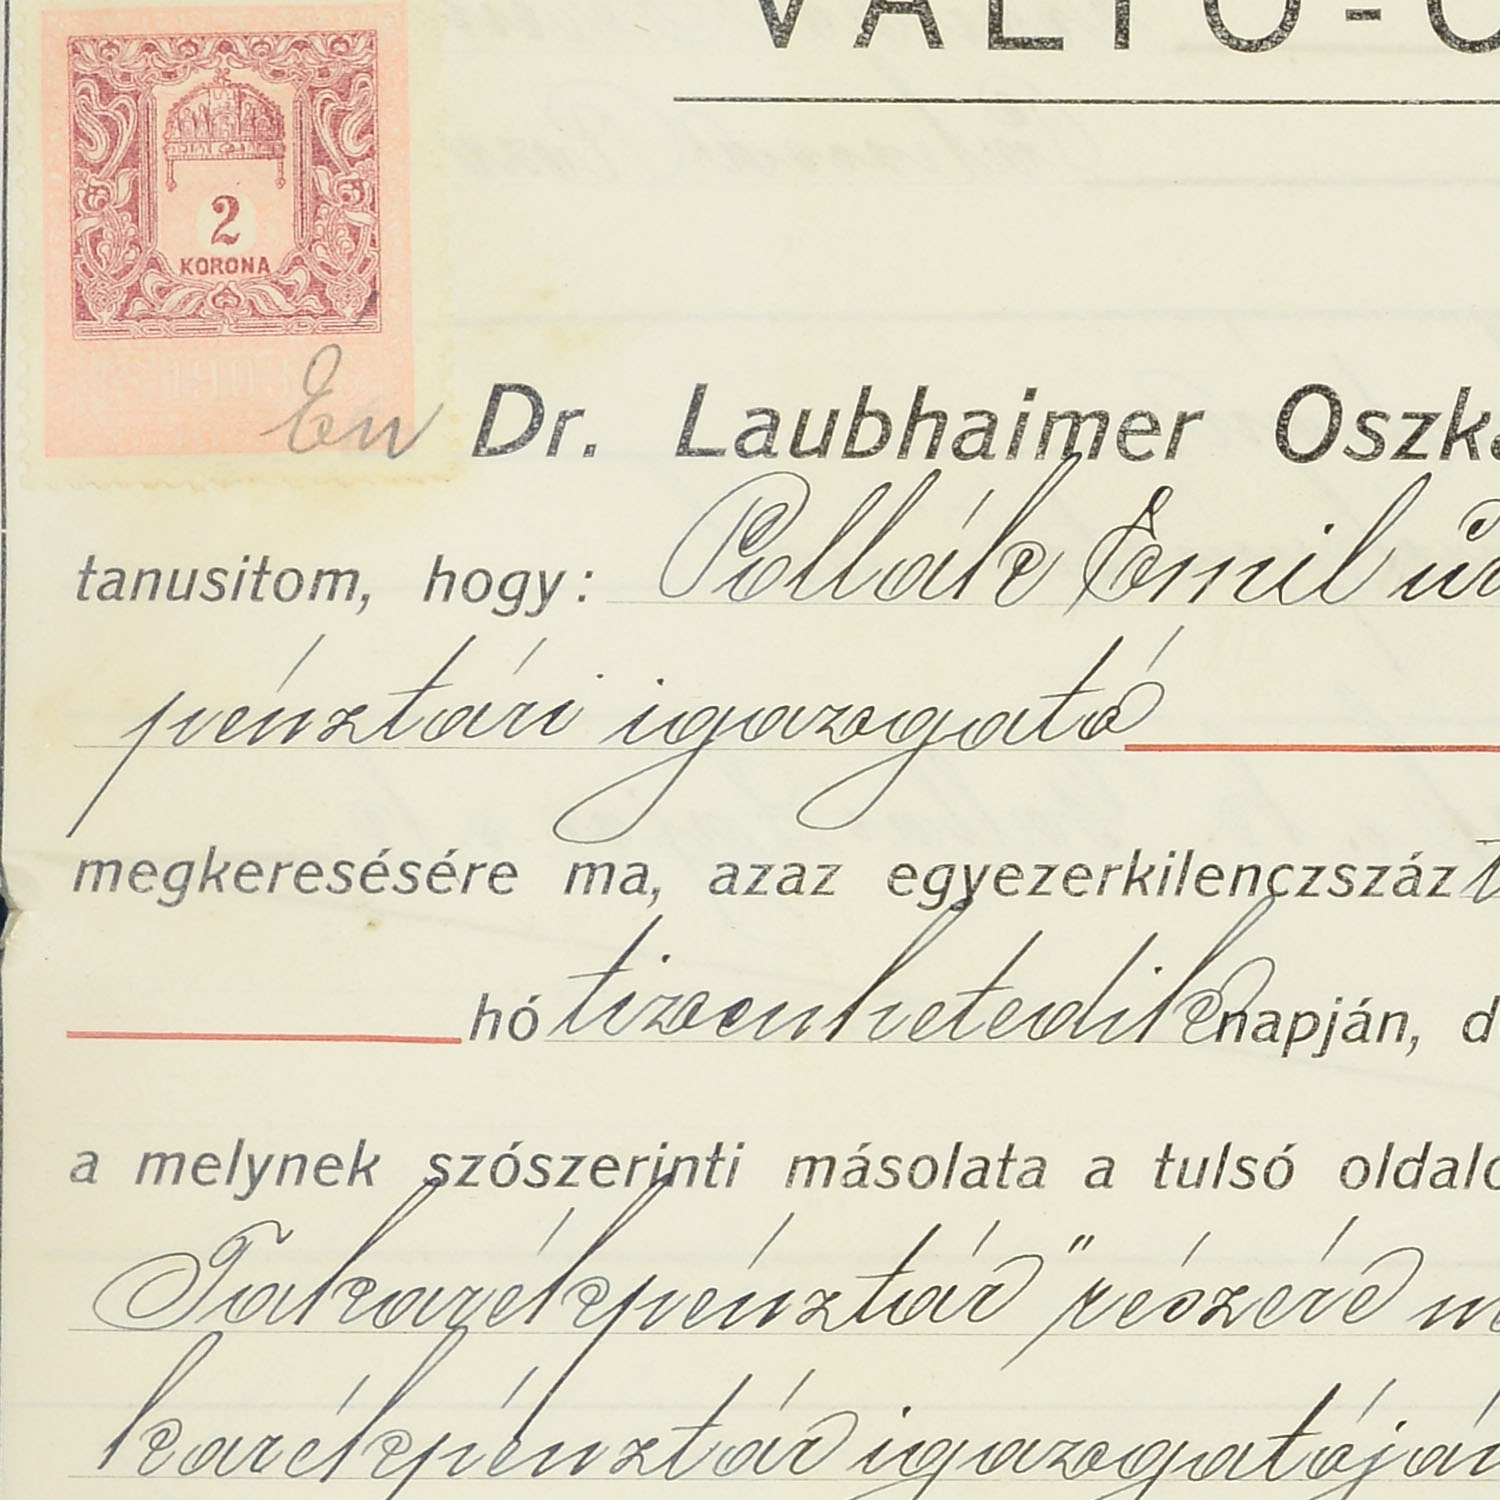 VÁLTÓ-Ó
2
KORONA
Én Dr. Laubhaimer Oszká
tanusitom, hogy: Pollák Emil úr
pénztári igazgató
megkeresésére ma, azaz egyezerkilenczszáz t
hó tizenhetedik napján, d
a melynek szószerinti másolata a tulsó oldalo
Takarékpénztár" részére m
karékpénztár igazgatóján